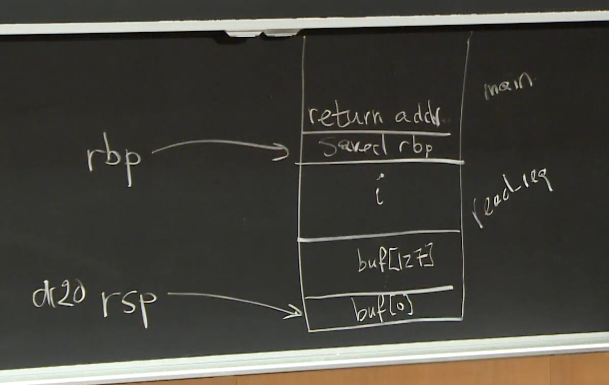 main
return addr
rbp
saved rbp
i
read_req
buf[127]
rsp
buf[0]